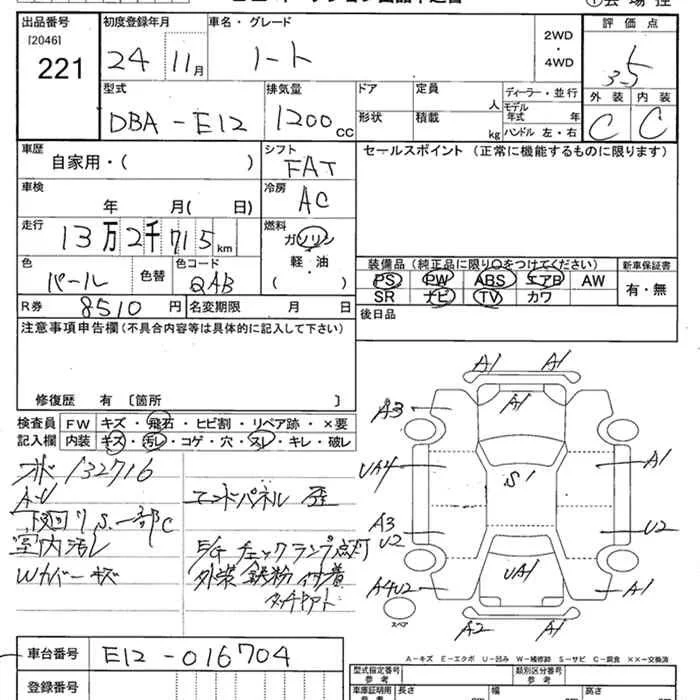 出品番号 [2046] 221
初度登録年月 24 11月
車名・グレード ノート
2WD・4WD
評価点 3.5
外装 C 内装 C
型式 DBA-E12
排気量 1200cc
ドア 形状
定員 人
積載 kg
ディーラー・並行
モデル年式 年
ハンドル 左・右
車歴 自家用・( )
シフト FAT
セールスポイント (正常に機能するものに限ります)
車検 年 月( 日)
冷房 AC
走行 13万2千715km
燃料 ガソリン・軽油 ( )
色 パール 色替 色コード QAB
装備品 (純正品に限り○をつけてください)
PS PW ABS エアB AW
SR ナビ TV カワ
新車保証書 有・無
R券 8510円 名変期限 月 日
後日品
注意事項申告欄(不具合内容等は具体的に記入して下さい)
修復歴 有 〔箇所 〕
検査員記入欄
FW キズ・飛石・ヒビ割・リペア跡・×要
内装 キズ・汚レ・コゲ・穴・スレ・キレ・破レ
132716
下廻り S.一部C
室内汚レ
Wカバーキズ
エンドパネル 歪
チェックランプ点灯
外装 鉄粉付着
タッチアト
A1 A1
A3 A1
UA4 S1 A1
A3 U2 U2
A4U2 UA1 A1
A2 A1
スペア
A-キズ E-エクボ U-凹み W-補修跡 S-サビ C-腐食 ××-交換済
車台番号 E12-016704
登録番号
型式指定番号 類別区分番号
車庫証明用 長さ 幅 高さ